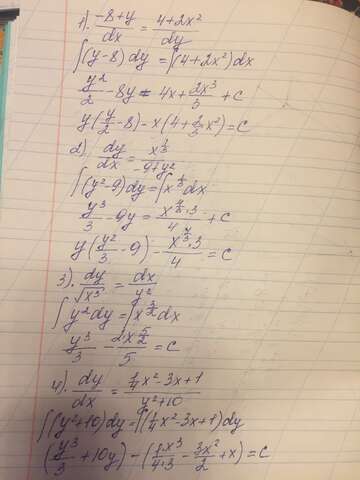 1). (-8+y)/dx = (4+2x²)/dy
∫(y-8)dy = ∫(4+2x²)dx
y²/2 - 8y = 4x + 2x³/3 + C
y(y/2 - 8) - x(4 + 2/3 x²) = C
2). dy/dx = x^(1/3)/(-9+y²)
∫(y²-9)dy = ∫x^(1/3)dx
y³/3 - 9y = x^(4/3)·3/4 + C
y(y²/3 - 9) - x^(4/3)·3/4 = C
3). dy/√x³ = dx/y²
∫y²dy = ∫x^(3/2)dx
y³/3 - 2x^(5/2)/5 = C
4). dy/dx = (1/4x² - 3x + 1)/(y²+10)
∫(y²+10)dy = ∫(1/4x² - 3x + 1)dy
(y³/3 + 10y) - (1·x³/4·3 - 3x²/2 + x) = C